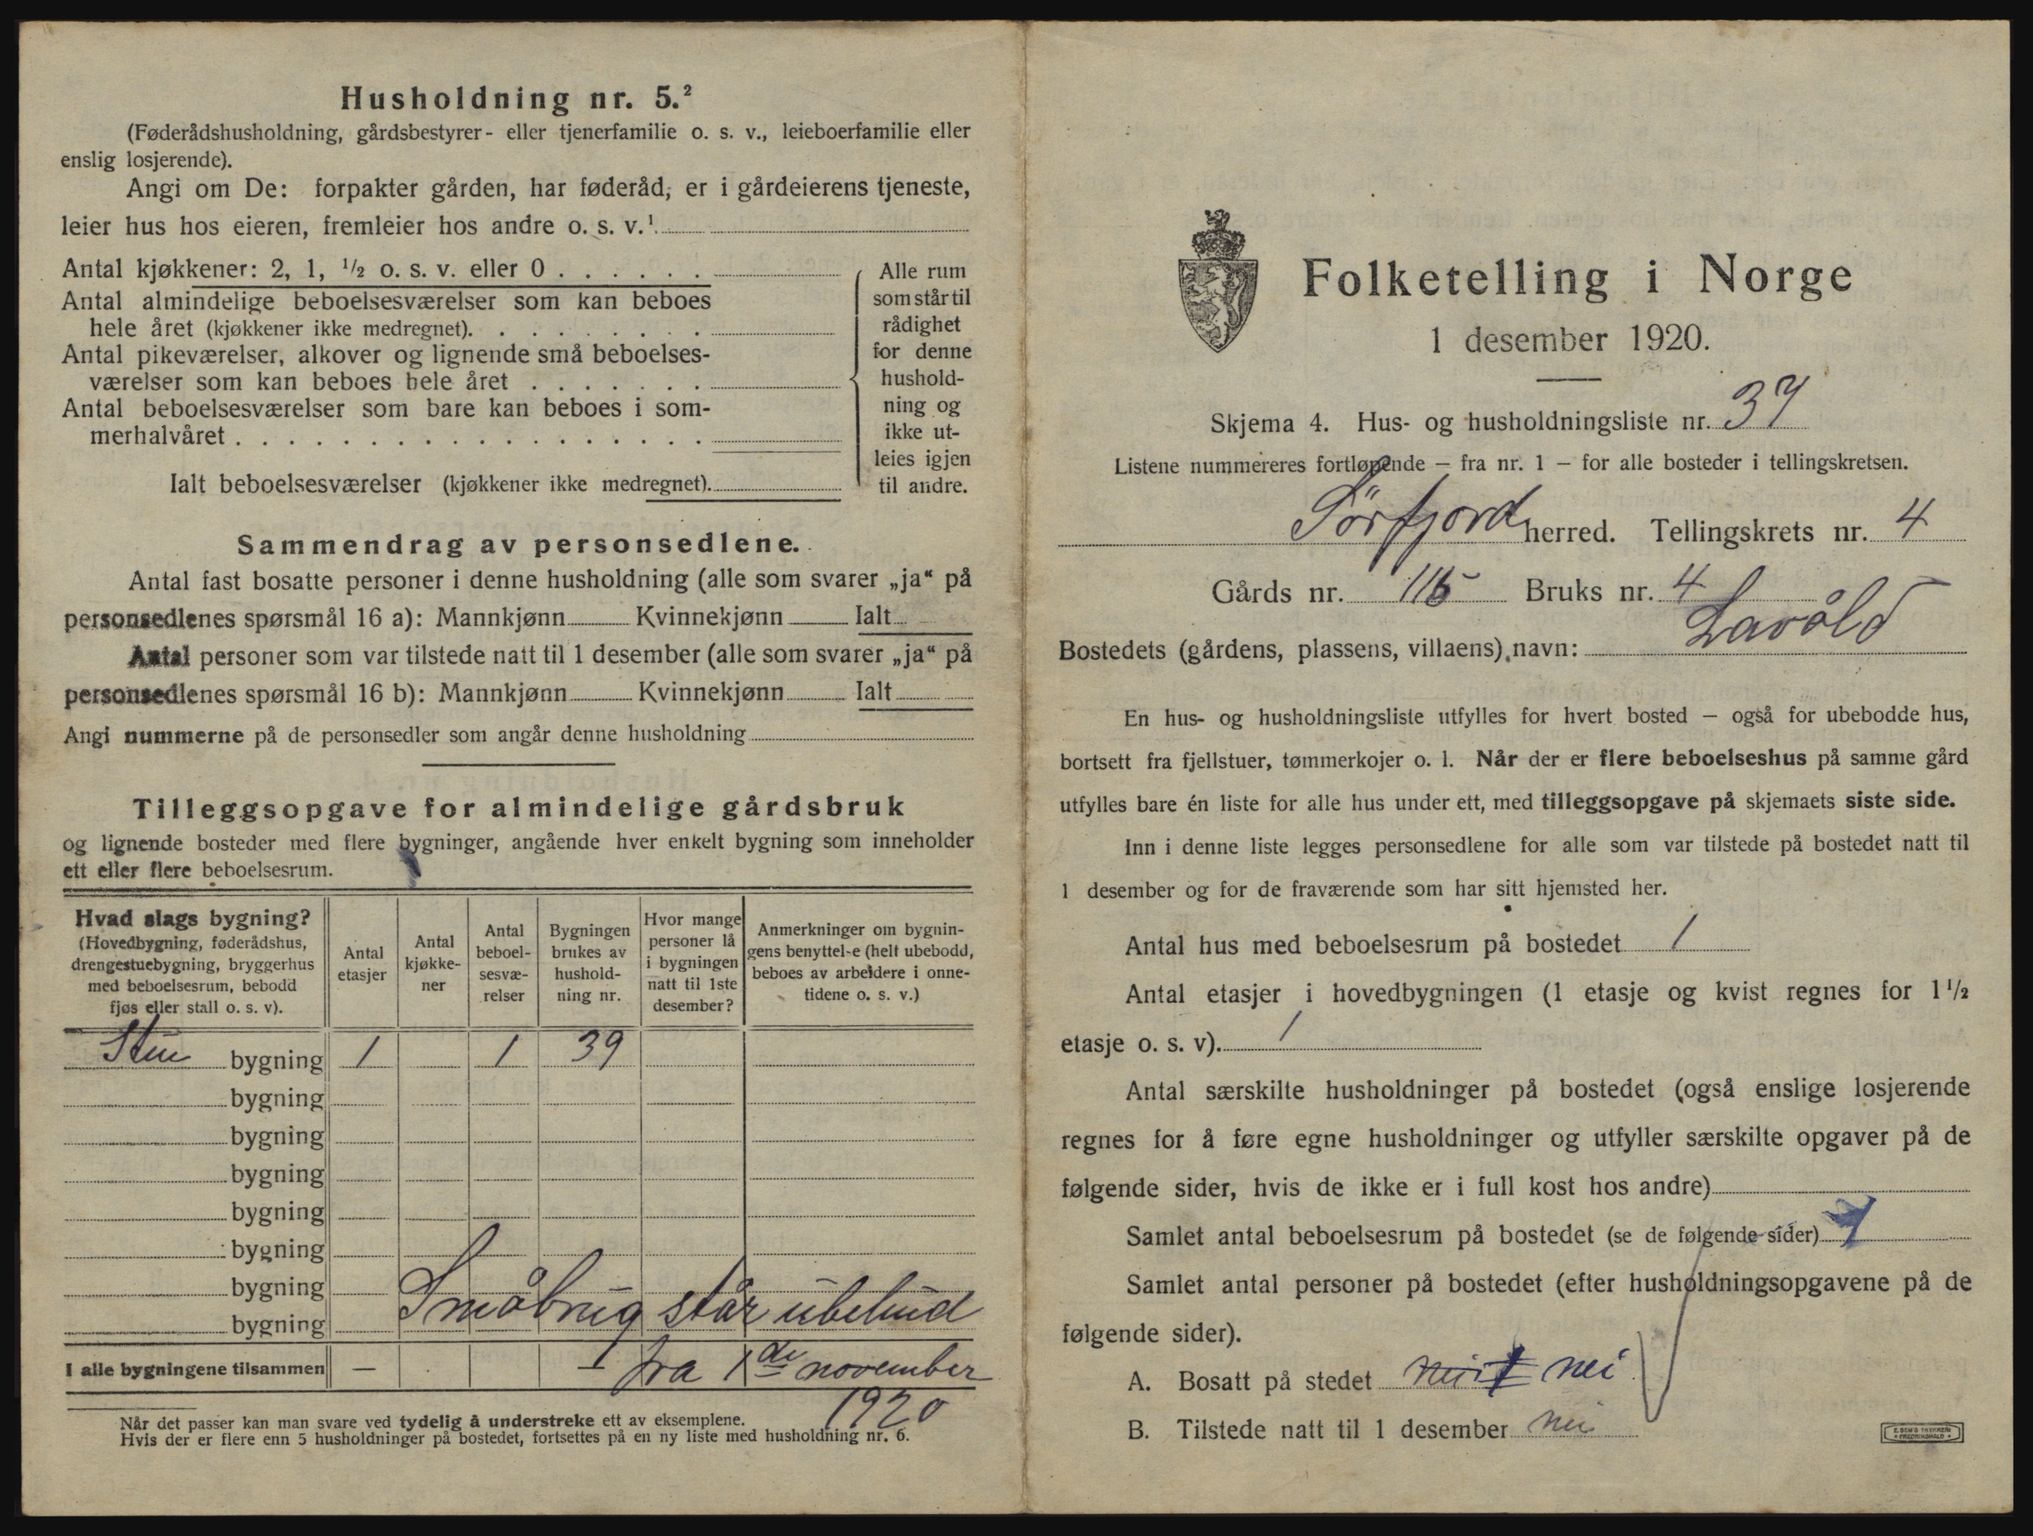 Husholdning nr. 5.²
(Føderådshusholdning, gårdsbestyrer- eller tjenerfamilie o. s. v., leieboerfamilie eller
enslig losjerende).
Angi om De: forpakter gården, har føderåd, er i gårdeierens tjeneste,
leier hus hos eieren, fremleier hos andre o. s. v.¹
Antal kjøkkener: 2, 1, ½ o. s. v. eller 0 . . . . . .
Antal almindelige beboelsesværelser som kan beboes
hele året (kjøkkener ikke medregnet). . . . . . . . .
Antal pikeværelser, alkover og lignende små beboelses-
værelser som kan beboes hele året . . . . . . .
Antal beboelsesværelser som bare kan beboes i som-
merhalvåret . . . . . . . . . . . . . . . . . .
Ialt beboelsesværelser (kjøkkener ikke medregnet).
Alle rum
som står til
rådighet
for denne
hushold-
ning og
ikke ut-
leies igjen
til andre.
Sammendrag av personsedlene.
Antal fast bosatte personer i denne husholdning (alle som svarer „ja“ på
personsedlenes spørsmål 16 a): Mannkjønn Kvinnekjønn Ialt
Antal personer som var tilstede natt til 1 desember (alle som svarer „ja“ på
personsedlenes spørsmål 16 b): Mannkjønn Kvinnekjønn Ialt
Angi nummerne på de personsedler som angår denne husholdning
Tilleggsopgave for almindelige gårdsbruk
og lignende bosteder med flere bygninger, angående hver enkelt bygning som inneholder
ett eller flere beboelsesrum.
Hvad slags bygning?
(Hovedbygning, føderådshus,
drengestuebygning, bryggerhus
med beboelsesrum, bebodd
fjøs eller stall o. s. v).
Antal
etasjer
Antal
kjøkke-
ner
Antal
beboel-
sesvæ-
relser
Bygningen
brukes av
hushold-
ning nr.
Hvor mange
personer lå
i bygningen
natt til 1ste
desember?
Anmerkninger om bygnin-
gens benyttelse (helt ubebodd,
beboes av arbeidere i onne-
tidene o. s. v.)
Stue bygning 1 1 39
bygning
bygning
bygning
bygning
bygning
bygning
bygning
Småbrug står ubebud
I alle bygningene tilsammen — —
fra 1de november
1920
Når det passer kan man svare ved tydelig å understreke ett av eksemplene.
Hvis der er flere enn 5 husholdninger på bostedet, fortsettes på en ny liste med husholdning nr. 6.
Folketelling i Norge
1 desember 1920.
Skjema 4. Hus- og husholdningsliste nr. 37
Listene nummereres fortløpende — fra nr. 1 — for alle bosteder i tellingskretsen.
Sørfjord herred. Tellingskrets nr. 4
Gårds nr. 115 Bruks nr. 4
Bostedets (gårdens, plassens, villaens) navn: Lavold
En hus- og husholdningsliste utfylles for hvert bosted — også for ubebodde hus,
bortsett fra fjellstuer, tømmerkojer o. l. Når der er flere beboelseshus på samme gård
utfylles bare én liste for alle hus under ett, med tilleggsopgave på skjemaets siste side.
Inn i denne liste legges personsedlene for alle som var tilstede på bostedet natt til
1 desember og for de fraværende som har sitt hjemsted her.
Antal hus med beboelsesrum på bostedet 1
Antal etasjer i hovedbygningen (1 etasje og kvist regnes for 1½
etasje o. s. v). 1
Antal særskilte husholdninger på bostedet (også enslige losjerende
regnes for å føre egne husholdninger og utfyller særskilte opgaver på de
følgende sider, hvis de ikke er i full kost hos andre)
Samlet antal beboelsesrum på bostedet (se de følgende sider) 1
Samlet antal personer på bostedet (efter husholdningsopgavene på de
følgende sider).
A. Bosatt på stedet nei
B. Tilstede natt til 1 desember nei